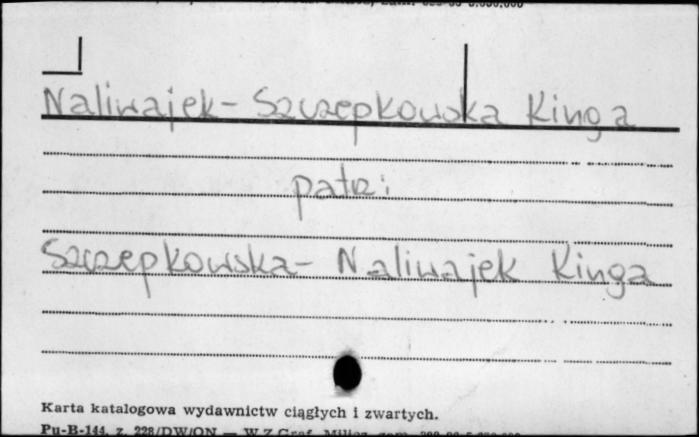 Naliwajek-Szczepkowska Kinga
patrz:
Szczepkowska-Naliwajek Kinga
Karta katalogowa wydawnictw ciągłych i zwartych.
Pu-B-144, z. 228/DW/ON — WZGraf.